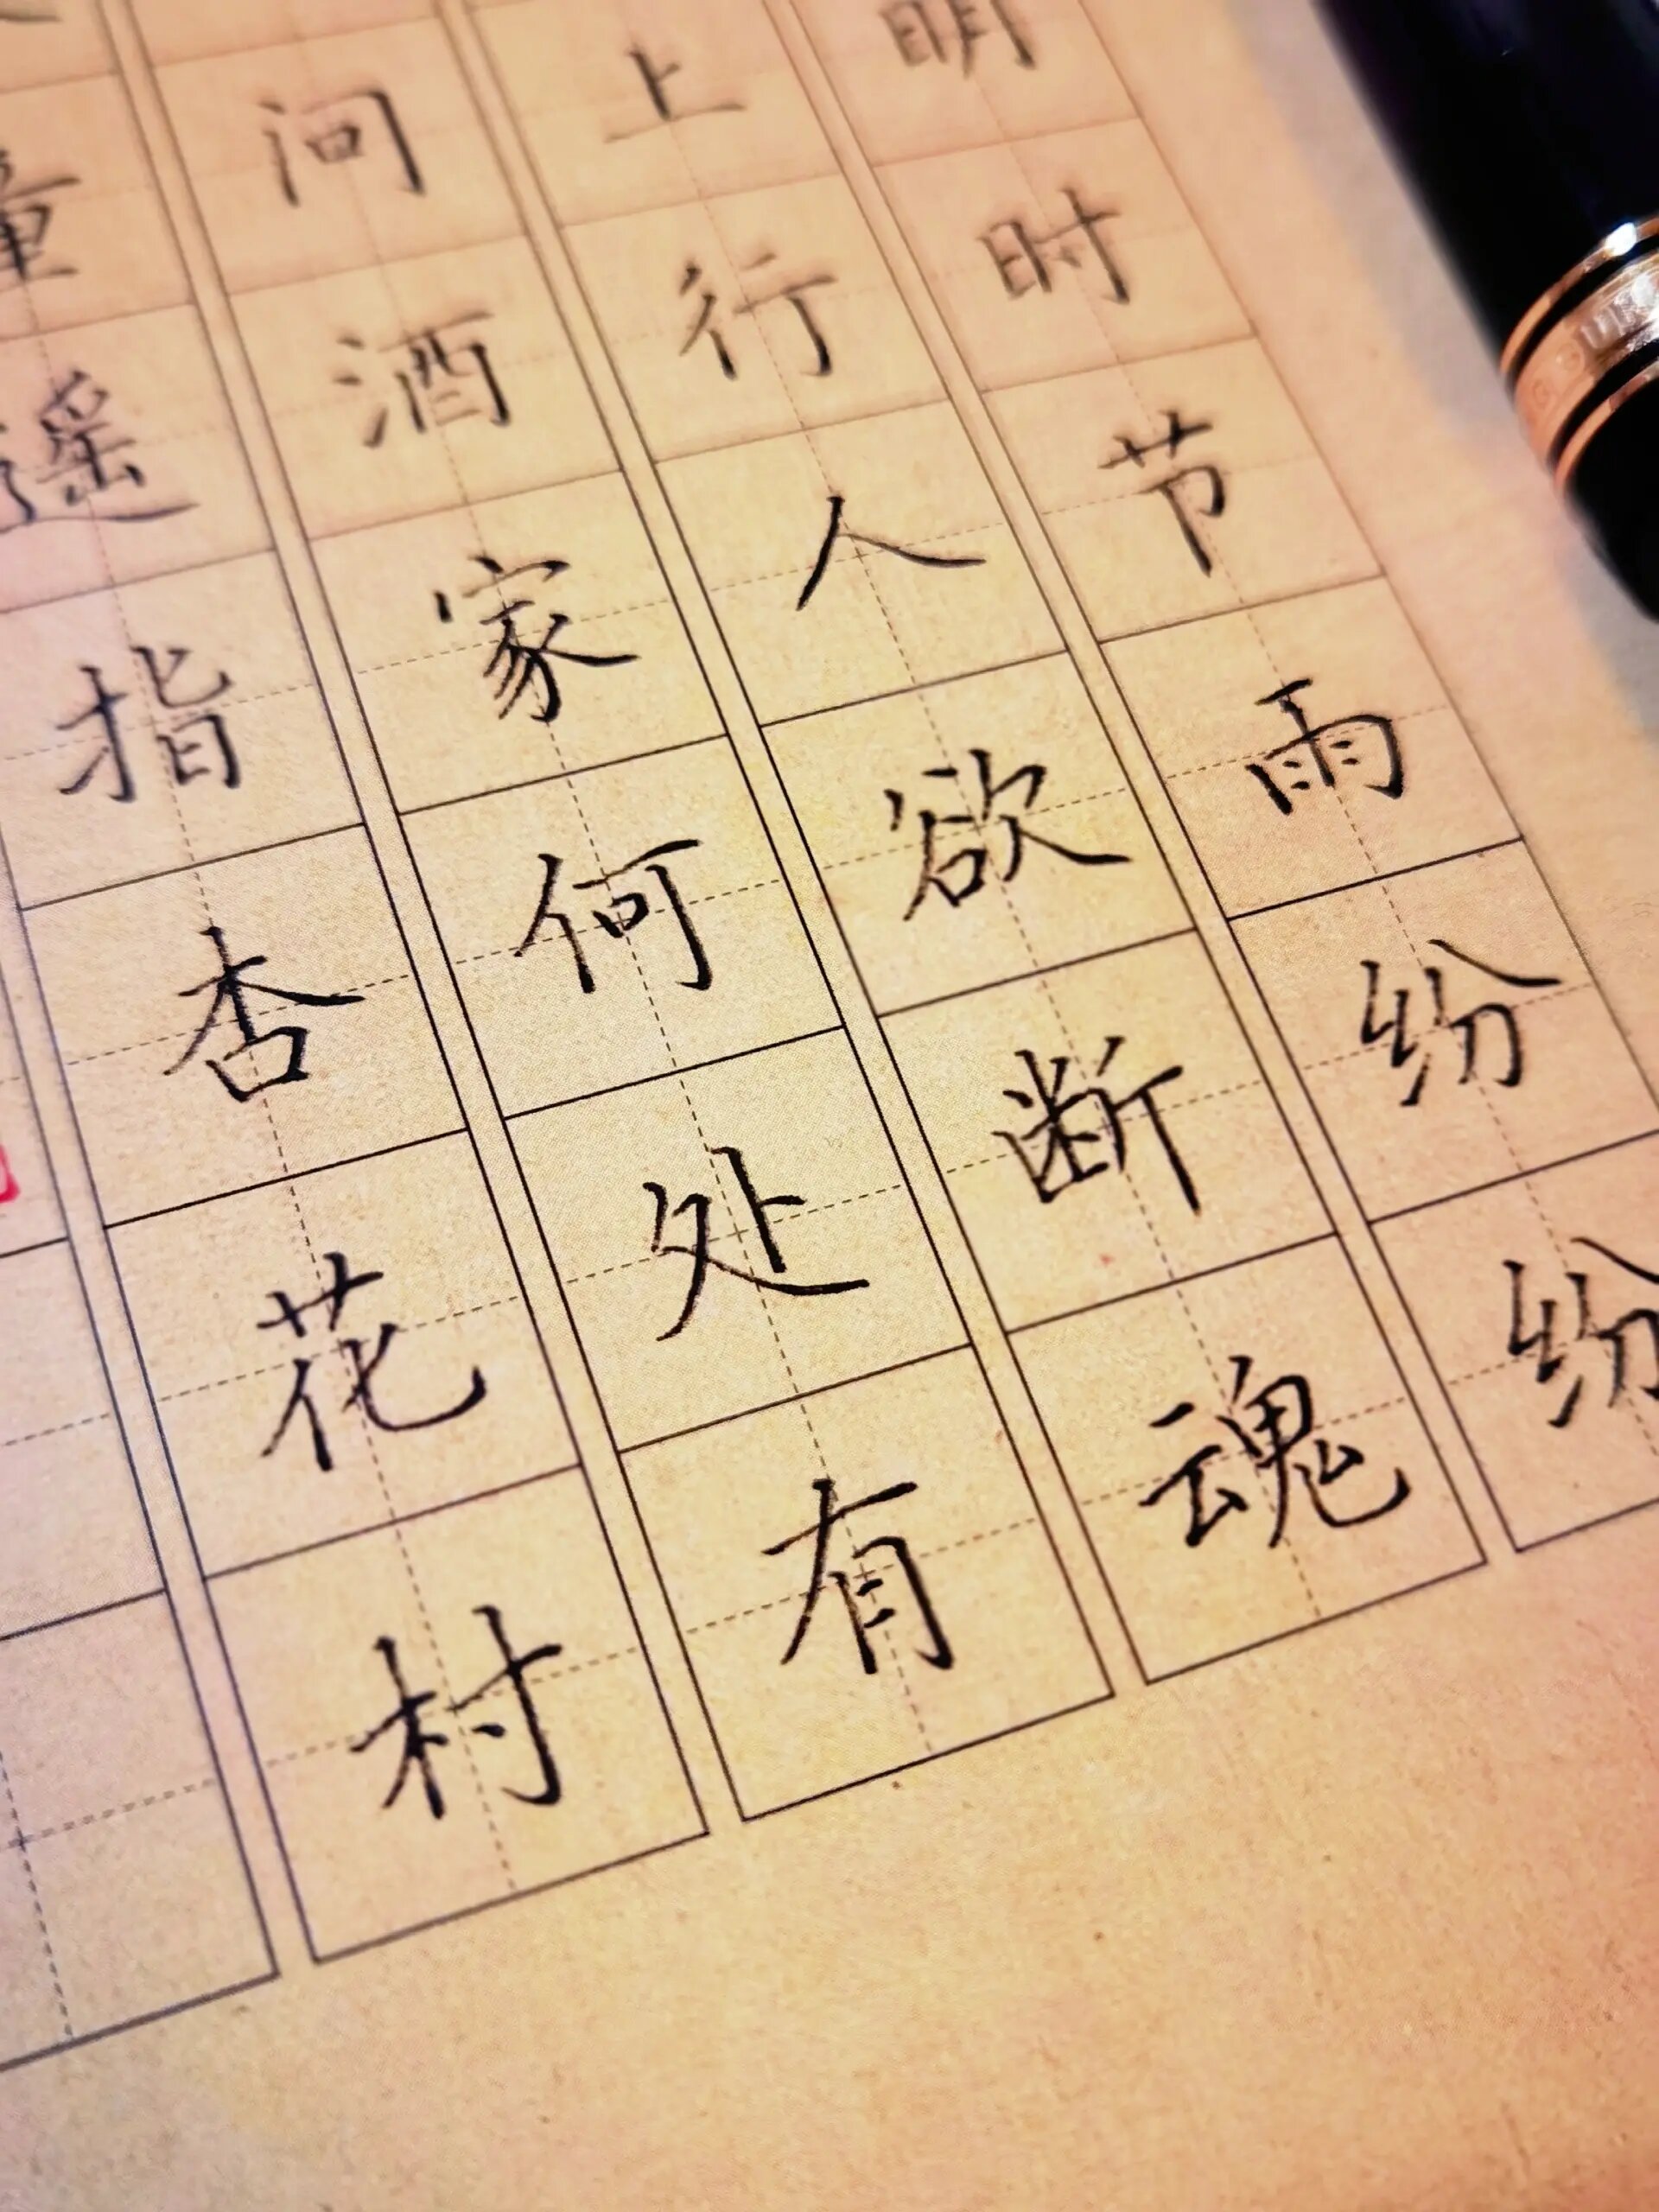 明时节雨纷纷
上行人欲断魂
问酒家何处有
童遥指杏花村